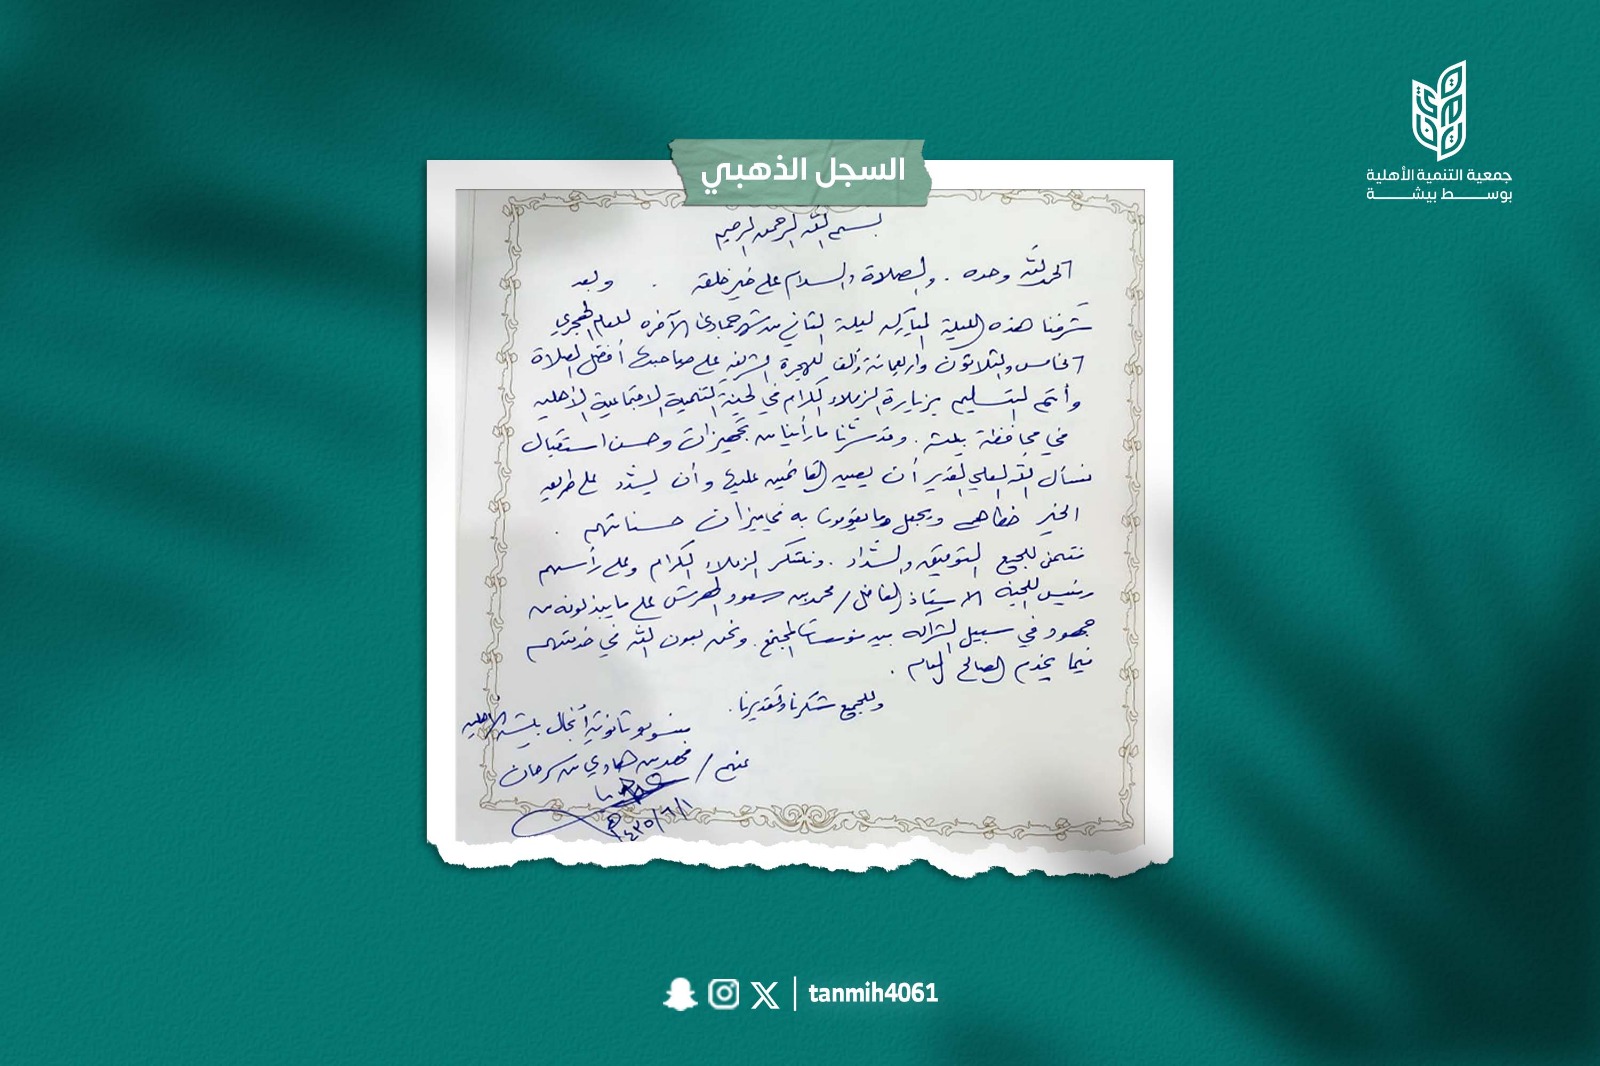 جمعية التنمية الأهلية
بوسط بيشة
السجل الذهبي
بسم الله الرحمن الرحيم
الحمد لله وحده . والصلاة والسلام على خير خلقه . وبعد
شرفنا هذه الليلة المباركة ليلة الثاني من شهر جمادى الآخره للعام الهجري
الخامس والثلاثون واربعمائة وألف للهجرة الشريفة على صاحبها أفضل الصلاة
وأتم التسليم بزيارة الزملاء الكرام في لجنة التنمية الاجتماعية الأهلية
في محافظة بيشة . وقد سرنا ما رأينا من تجهيزات وحسن استقبال
نسأل الله العلي القدير أن يعين القائمين عليها وأن يسدد على طريق
الخير خطاهم ويجعل ما يقومون به في ميزان حسناتهم .
نتمنى للجميع التوفيق والسداد . ونشكر الزملاء الكرام وعلى رأسهم
رئيس اللجنة الاستاذ الفاضل / محمد بن سعود على ما يبذلونه من
جهود في سبيل الشراكة بين مؤسسات المجتمع . ونحن بعون الله في خدمتهم
فيما يخدم الصالح العام .
وللجميع شكرنا وتقديرنا .
منسوبو ثانوية أنجال بيشة الأهلية
عنهم / محمد بن هادي بن سرحان
١٤٣٥/٦/١هـ
tanmih4061